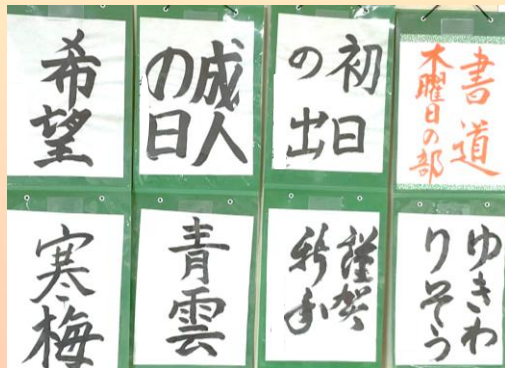 書道
木曜日の部
初日
の出
成人
の日
希望
ゆきわ
りそう
謹賀
新年
青雲
寒梅